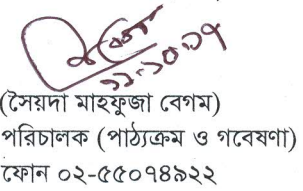 ২২-১০-১৭
(সৈয়দা মাহফুজা বেগম)
পরিচালক (পাঠ্যক্রম ও গবেষণা)
ফোন ০২-৫৫০৭৪৯২২